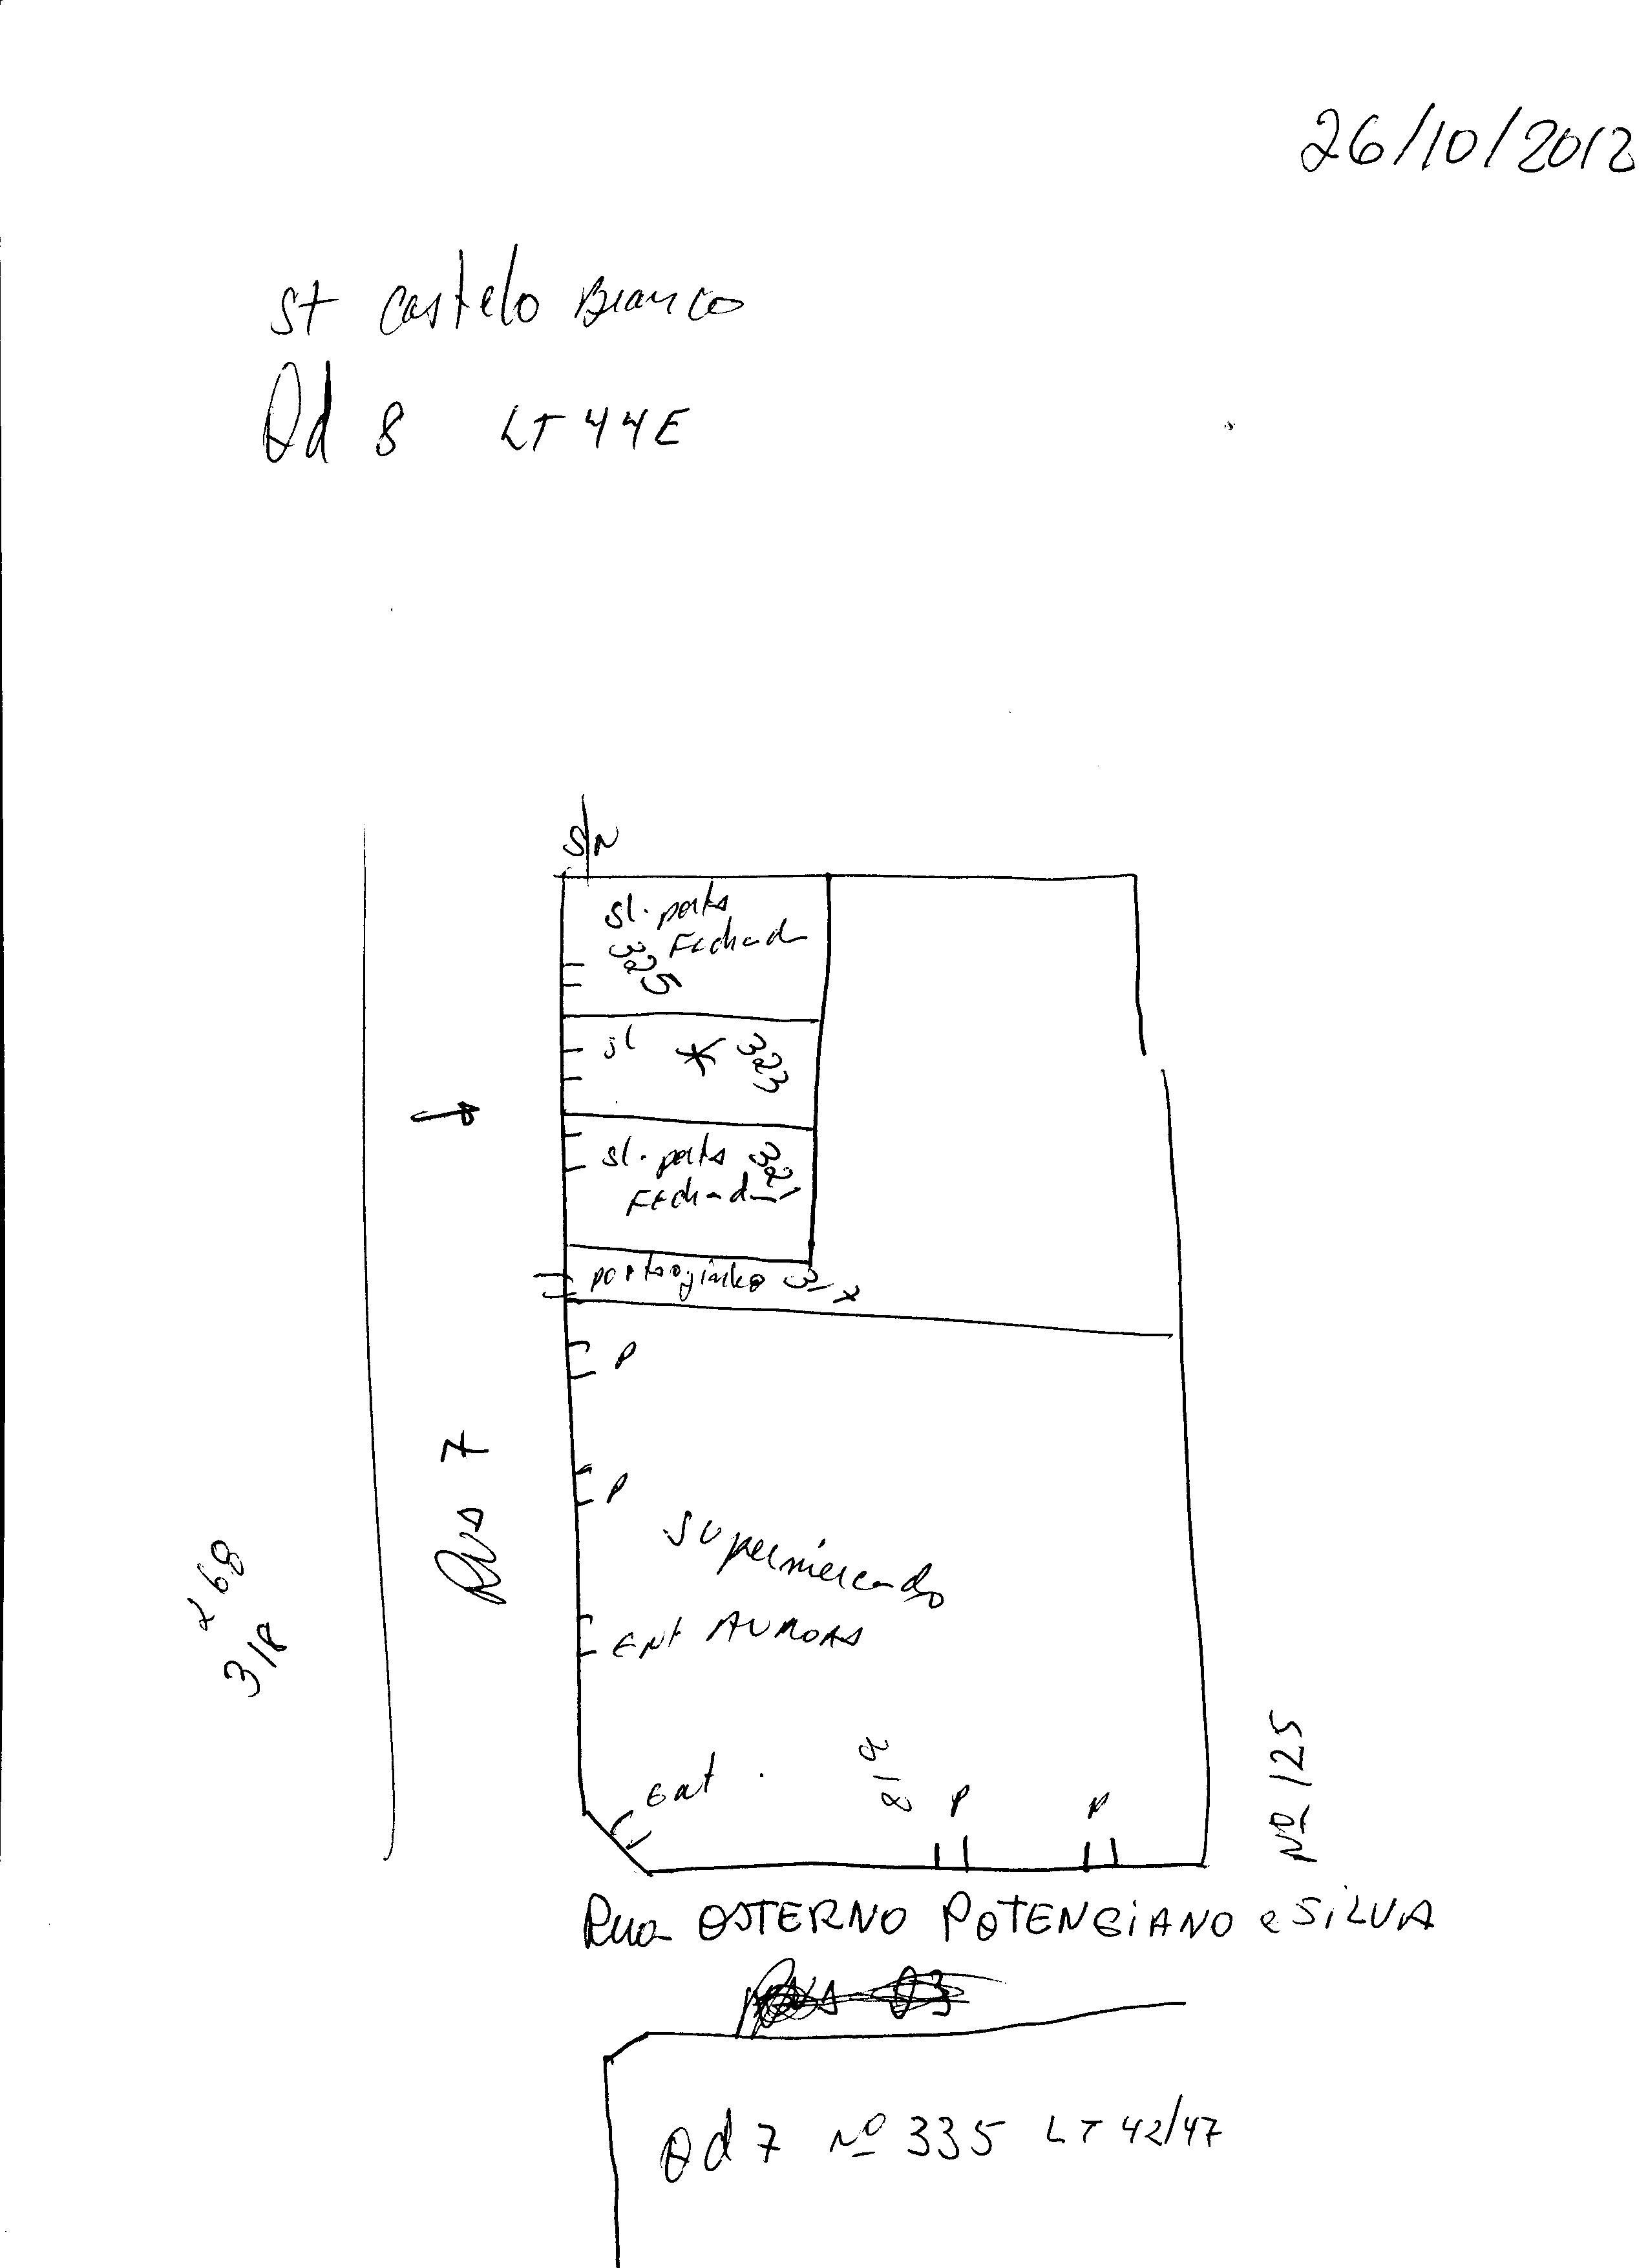 26/10/2012
St Castelo Branco
Qd 8 LT 44E
S/N
sl. porta
Fechad
325
sl * 323
sl. porta 321
Fechad
portão 317
P
P
Rua 7
Supermercado
ENT
268
318
Ent.
P P
Nº 125
Rua OSTERNO POTENGIANO e SILVA
Qd 7 Nº 335 LT 42/47